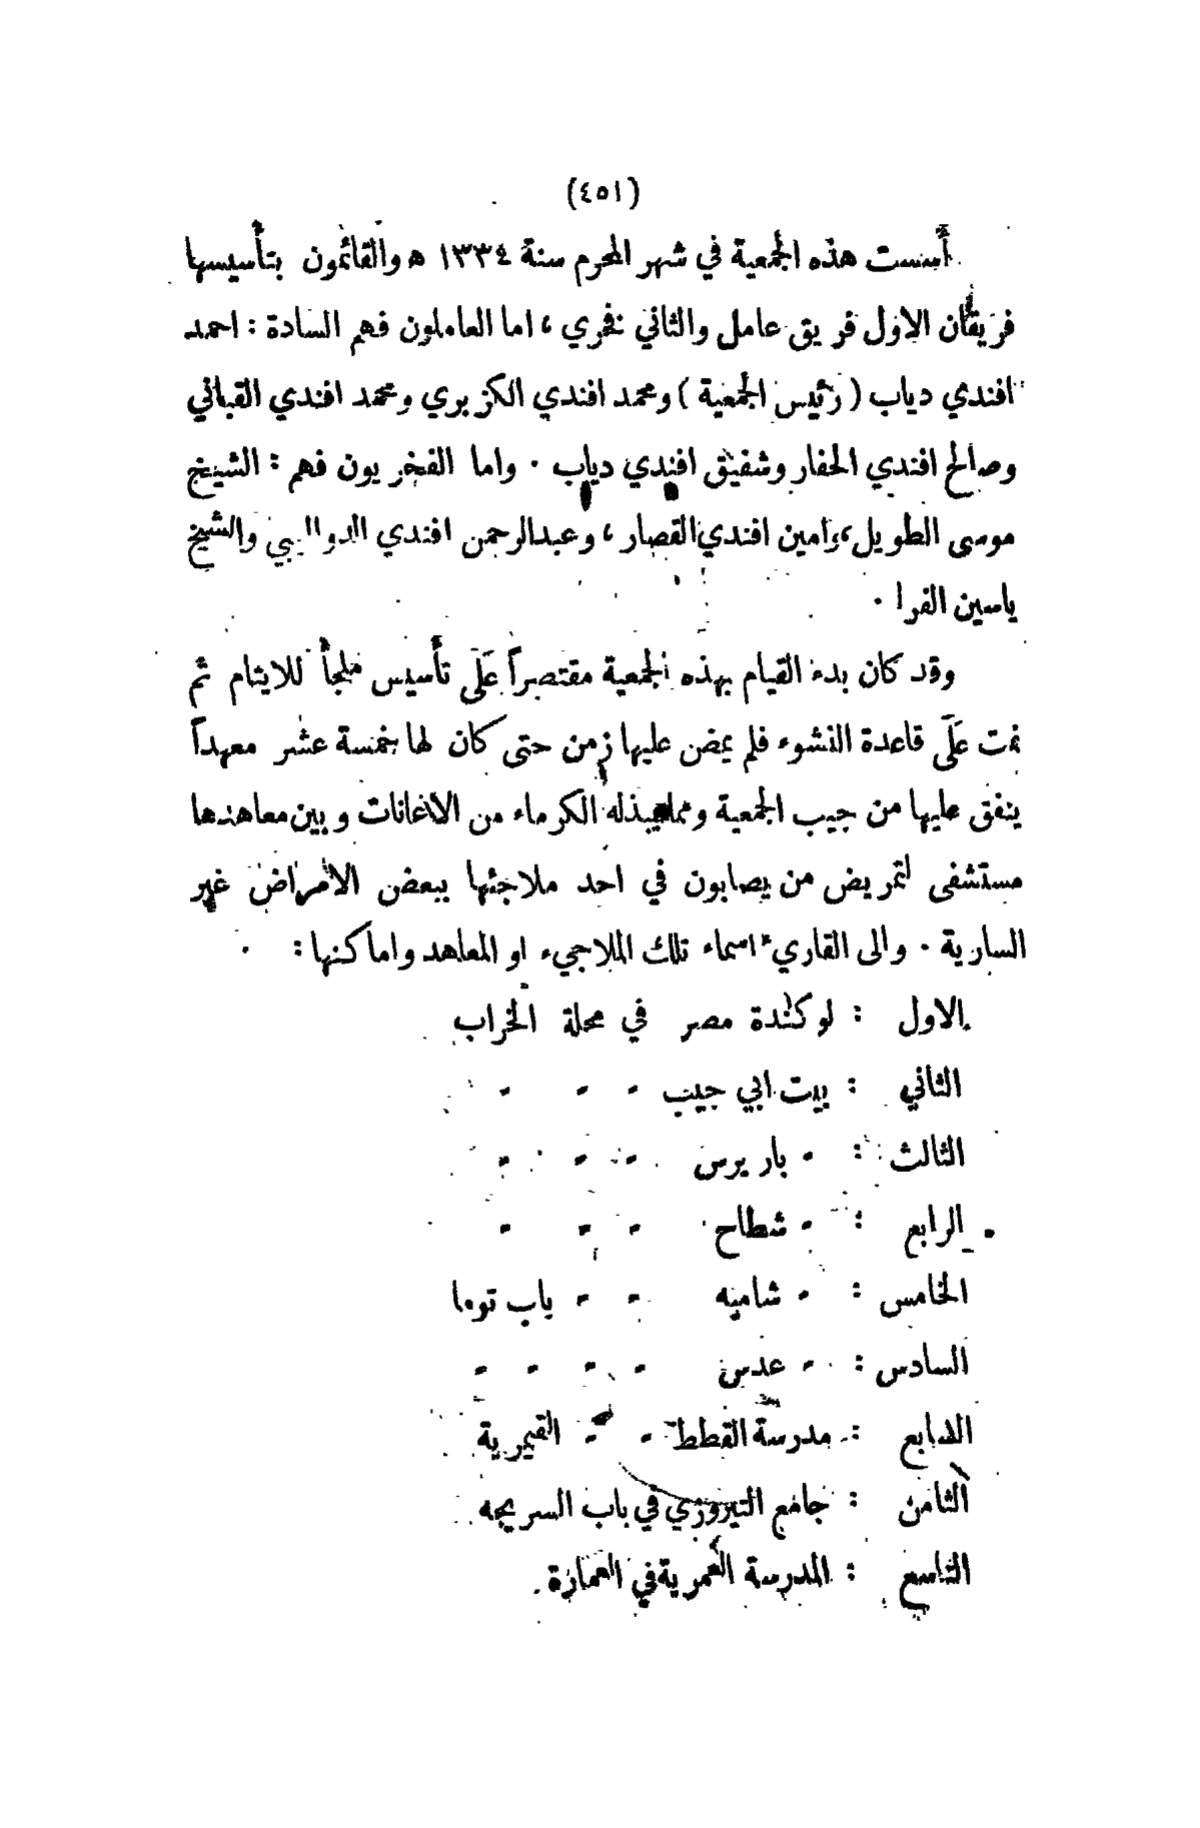 (٤٥١)
أسست هذه الجمعية في شهر المحرم سنة ١٣٣٤ ه والقائمون بتأسيسها
فريقان الاول فريق عامل والثاني فخري ، اما العاملون فهم السادة : احمد
افندي دياب ( رئيس الجمعية ) ومحمد افندي الكزبري ومحمد افندي القباني
وصالح افندي الحفار وشفيق افندي دياب . واما الفخريون فهم : الشيخ
موسى الطويل، وامين افندي القصار ، وعبدالرحمن افندي الدواليبي والشيخ
ياسين الفرا .
وقد كان بدء القيام بهذه الجمعية مقتصراً عَلَى تأسيس ملجأ للايتام ثم
نمت عَلَى قاعدة النشوء فلم يمض عليها زمن حتى كان لها خمسة عشر معهداً
ينفق عليها من جيب الجمعية ومما يبذله الكرماء من الاعانات وبين معاهدها
مستشفى لتمريض من يصابون في احد ملاجئها ببعض الامراض غير
السارية . والى القاريء اسماء تلك الملاجيء او المعاهد واماكنها :
الاول : لوكندة مصر في محلة الخراب
الثاني : بيت ابي جيب - - -
الثالث : - باريرس - - -
الرابع : - شطاح - - -
الخامس : - شاميه - - باب توما
السادس : - عدس - - - -
السابع : مدرسة القطط - - القيمرية
الثامن : جامع التيروزي في باب السريجه
التاسع : المدرسة العمرية في العمارة